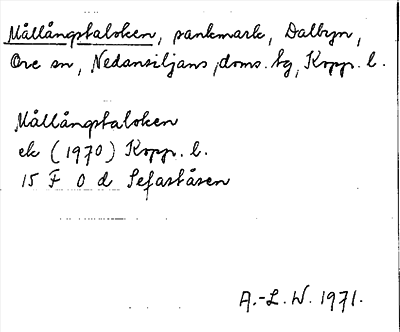 Mållångstaloken, sankmark, Dalbyn,
Ore sn, Nedansiljans doms. tg, Kopp. l.
Mållångstaloken
ek (1970) Kopp. l.
15 F 0 d Sefaståsen
A.-L. W. 1971.